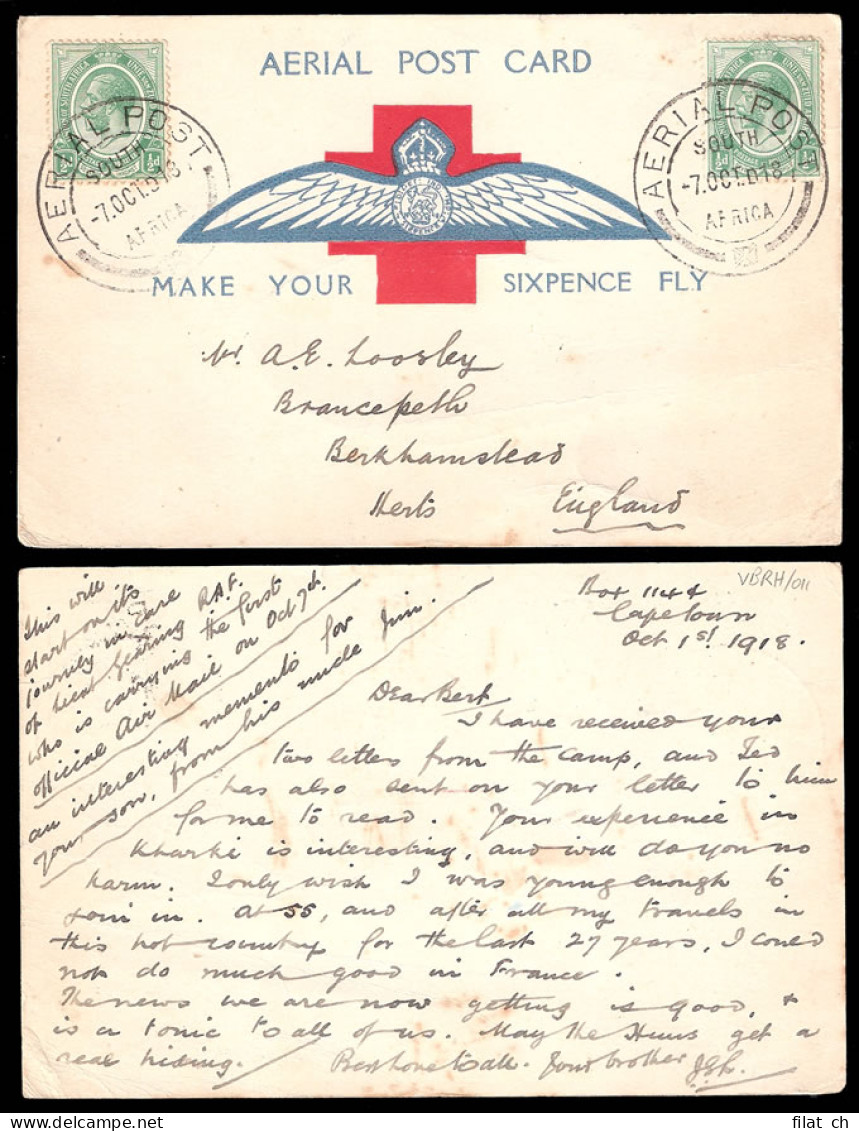 AERIAL POST CARD
AERIAL POST
SOUTH
-7.OCT.D18
AFRICA
AERIAL POST
SOUTH
-7.OCT.D18
AFRICA
½d
½d
MAKE YOUR SIXPENCE FLY
Mr. A. E. Loosley
Brancepeth
Berkhamstead
Herts England
VBRH/011
Box 1144
Capetown
Oct 1st 1918.
This will
start on its
journey in care
of Lieut Gearing R.A.F.
who is carrying the first
official Air Mail on Oct 7th.
an interesting memento for Jim.
your son, from his uncle
Dear Bert
I have received your
two letters from the camp, and Ted
has also sent on your letter to him
for me to read. Your experience in
Kharki is interesting, and will do you no
harm. I only wish I was young enough to
join in. At 55, and after all my travels in
this hot country for the last 27 years, I could
not do much good in France.
The news we are now getting is good, &
is a tonic to all of us. May the Huns get a
real hiding. Best love to all. Your brother
filat ch